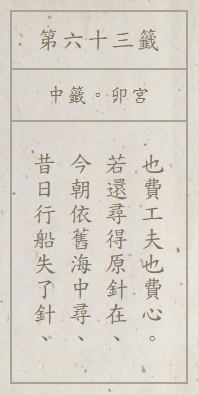 第六十三籤
中籤。卯宮
昔日行船失了針、
今朝依舊海中尋、
若還尋得原針在、
也費工夫也費心。